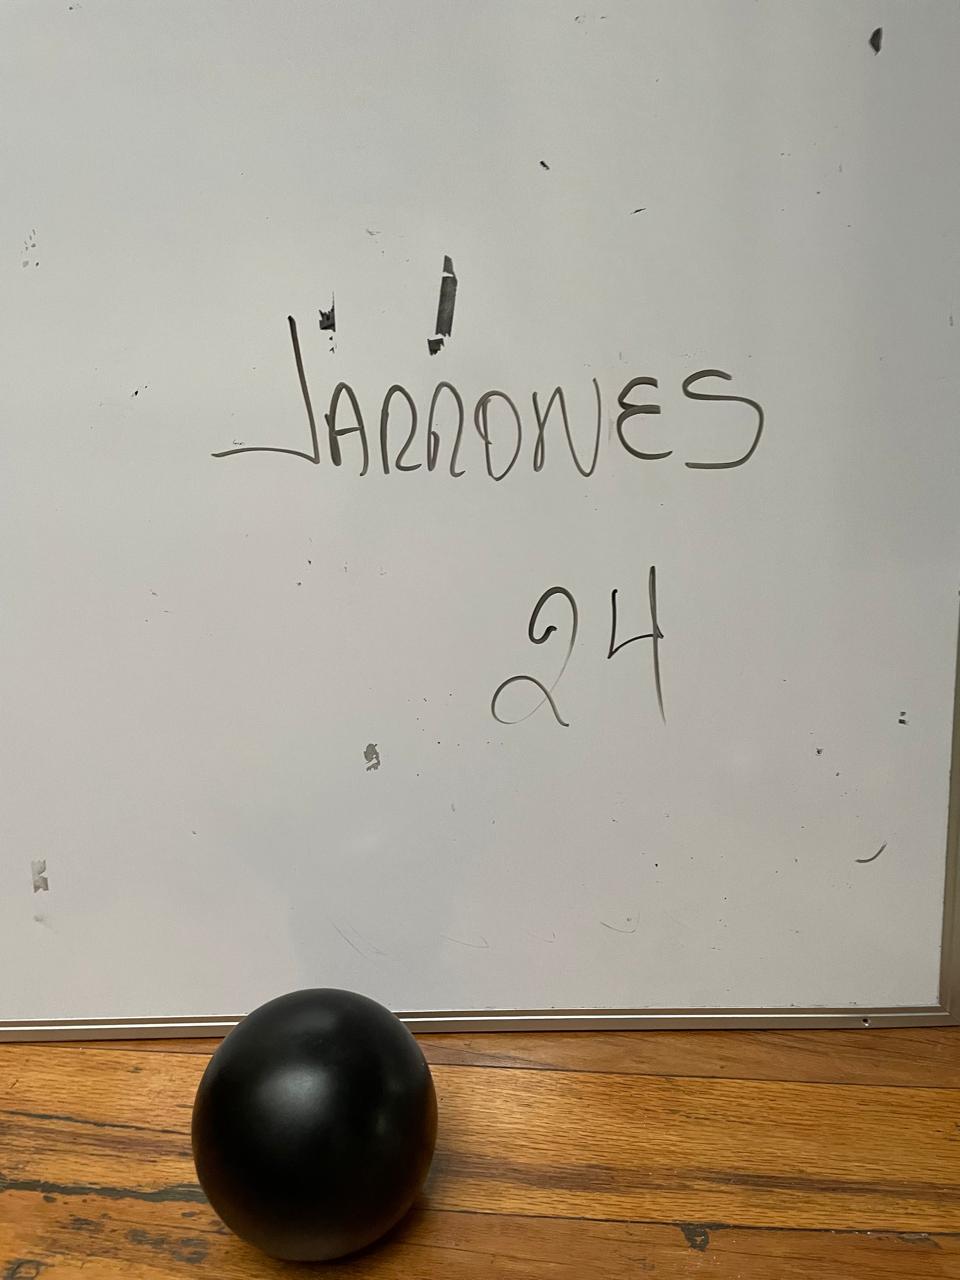 JARRONES
24